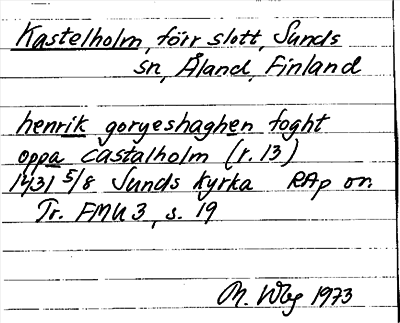 Kastelholm, förr slott, Sunds
sn, Åland, Finland
henrik goryeshaghen foght
oppa castalholm (r. 13)
1431 5/8 Sunds kyrka RAp or.
Tr. FMU 3, s. 19
M. Wbg 1973